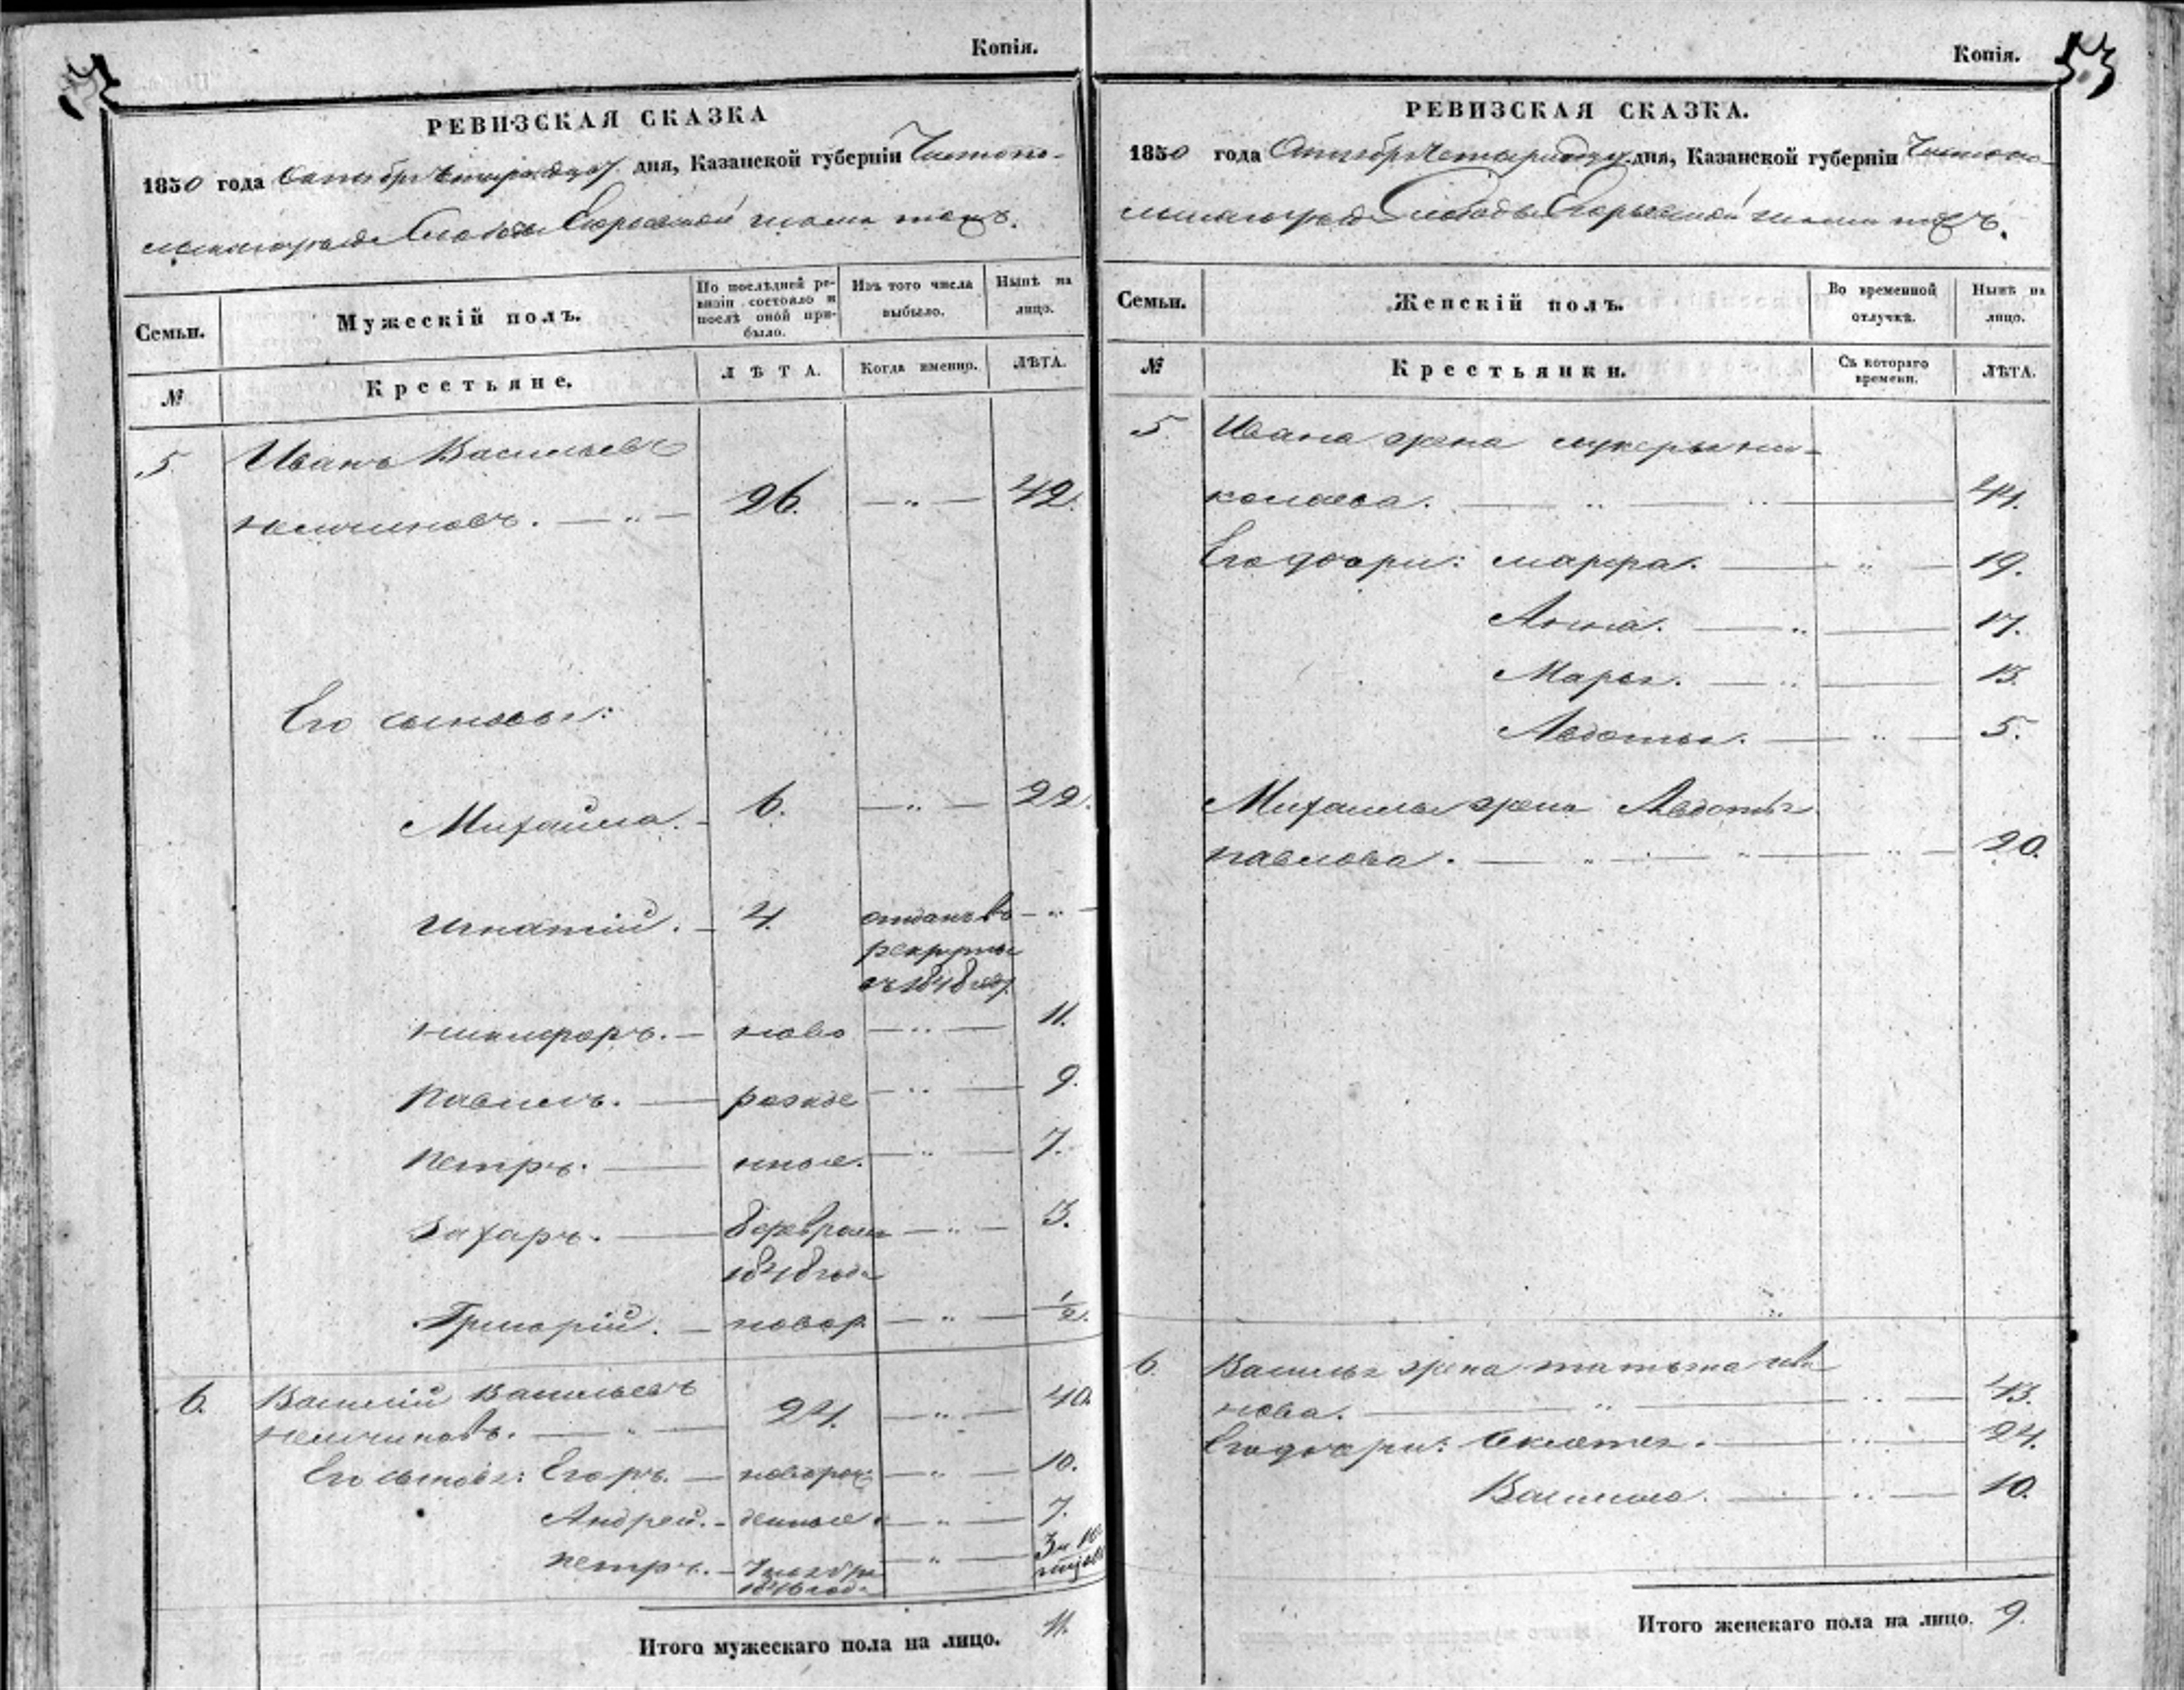 Копія.
РЕВИЗСКАЯ СКАЗКА
1850 года Октября дня, Казанской губерніи Чистопо-
Слободы Егорьевской
Семьи.
Мужескій полъ.
По послѣдней ре-
визіи состояло и
послѣ оной при-
было.
Изъ того числа
выбыло.
Нынѣ на
лицо.
№
Крестьяне.
ЛѢТА.
Когда именно.
ЛѢТА.
5 Иванъ Васильевъ
26. — " — 42.
Его сыновья:
Михайла. 6. — " — 22.
Игнатій. 4. отданъ въ — " —
рекруты
въ 1848 году
Никифоръ. — ново — " — 11.
Павилъ. — рожде — " — 9.
Петръ. — нные. — " — 7.
Захаръ. — 8 февраля — " — 3.
1848 года
Григорій. — новор. — " — 1/2.
6. Василій Васильевъ
24. — " — 40.
Его сыновья: Егоръ. — новорож — " — 10.
Андрей. — денные. — " — 7.
Петръ. —
1846 года
Итого мужескаго пола на лицо. 11.
Копія.
РЕВИЗСКАЯ СКАЗКА.
1850 года Октября дня, Казанской губерніи Чистопо-
Слободы Егорьевской
Семьи.
Женскій полъ.
Во временной
отлучкѣ.
Нынѣ на
лицо.
№
Крестьянки.
Съ котораго
времени.
ЛѢТА.
5. Ивана жена Лукерья Ни-
колаева. 44.
Его дочери: Марфа. — " — 19.
Анна. — " — 17.
Марья. — " — 13.
Авдотья. — " — 5.
Михаилы жена Авдотья
Павлова. — " — 20.
6. Василья жена Татьяна Ива
нова. — " — 43.
Его дочери: Секлетея. — " — 24.
Васильса. — " — 10.
Итого женскаго пола на лицо. 9.